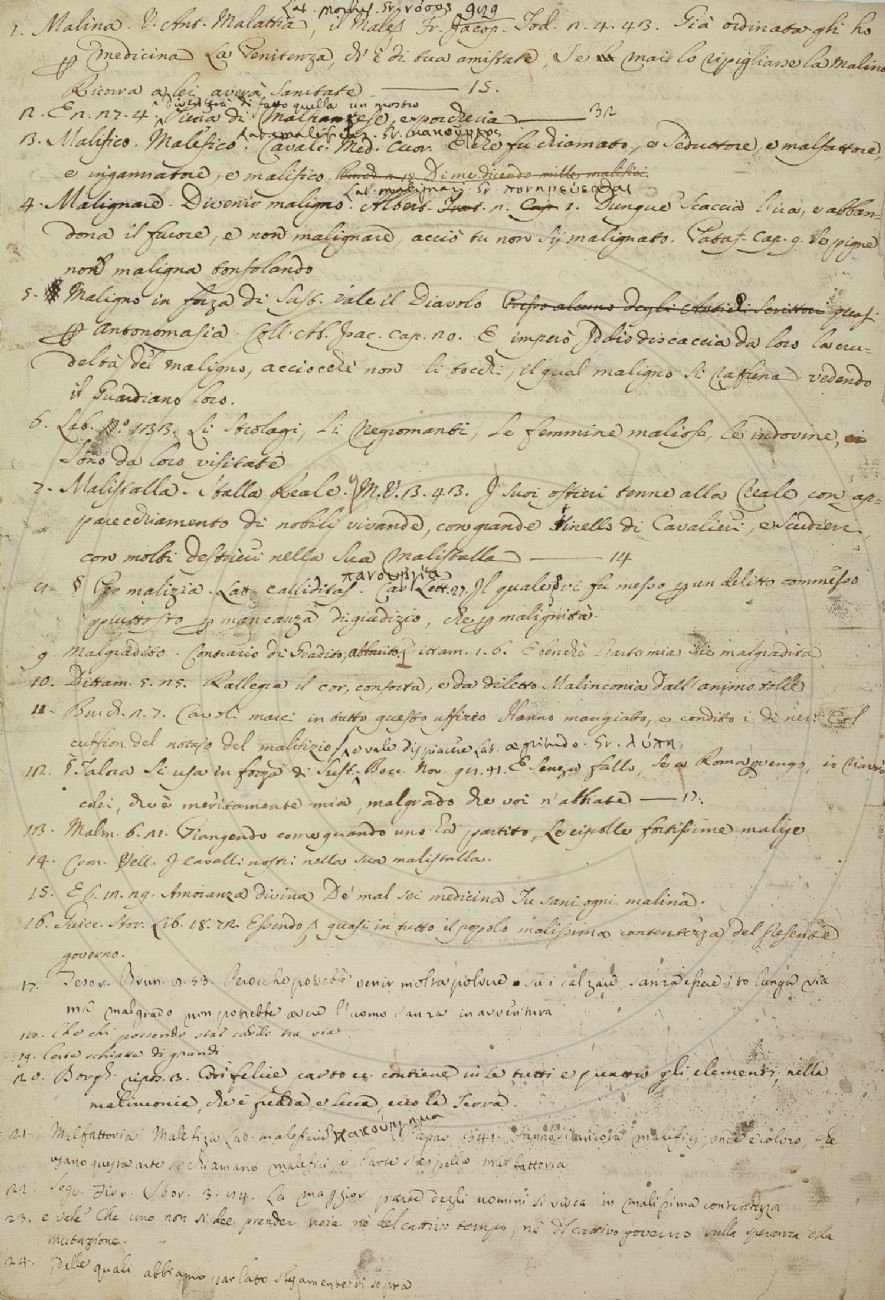 Lat. morbus. Gr. νόσος
1. Malina. V. Ant. Malattia, il Males. Fr. Jacop. Tod. 2. 4. 43. Già ordinata gli ho
medicina La Penitenza, ch'è di tua amistate, Se mai lo ripigliasse la Malina
Ricorra a lei averà Sanitate ——— 15.
diventerà di fatto quella un mostro
2. E n. 27. 4. Piena di Malfranzese, e porcheria ——— 32
Lat. maleficus. Gr. κακοῦργος
3. Malifico. Malefico. Cavalc. Med. cuor. E che fu chiamato, e Seduttore, e malfattore,
e ingannatore, e malifico. Di me dicendo mille malifici.
Lat. malignari. Gr. πονηρεύεσθαι
4. Malignare. Divenir maligno. Albert. Trat. n. Cap. 1. Dunque Scaccia l'ira, e abban-
dona il furore, e non malignare, acciò tu non sij malignato. Pataf. Cap. 9. Se pigne
non maligna consolando
5. Maligno in forza di Sust. vale il Diavolo Presso alcuno degli Antichi Scrittori quasi
antonomasia. Coll. Ab. Isac. Cap. 20. E imperò Iddio discaccia da loro la cru-
deltà del maligno, acciocchè non li tocchi, il qual maligno si raffrena vedendo
il Guardiano loro.
6. Lab. n.º 133. Li Strolagi, Li Negromanti, Le femmine maliose, le indovine,
Sono da loro visitate
7. Malistalla. Stalla Reale. M. V. 3. 43. I suoi ostieri tenne alla Reale con ap-
parecchiamento di nobili vivande, con grande tinello di Cavalieri, e Scudieri,
con molti destrieri nella Sua Malistalla ——— 14
πανουργία
8. § Per malizia. Lat. calliditas. Car. Lett. 27. Il quale vi fu messo per un delitto commesso
piuttosto per mancanza di giudizio, che per malignità.
9. Malgradito. Contrario di Gradito, 1. 6. E benchè l'arte mia sie malgradita
10. Dittam. 5. 25. Rallegra il cor, conforta, e da diletto Malinconia dall'animo tolle
11. Burch. 2. 7. Cavoli marci in tutto questo uffizio Hanno mangiato, e condito i dì neri Col
cuffion del notajo del malifizio
e vale dispiacere Lat. aegritudo. Gr. λύπη.
12. § Talora Si usa in forza di Sust. Bocc. Nov. E Senza fallo, Se a Roma pervengo, io riavrò
colei, che è meritamente mia, malgrado che voi n'abbiate —— 17.
13. Malm. 6. 21. Piangendo come quando uno ha partito Le cipolle fortissime malige
14. Cron. Vell. I cavalli nostri nella sua malistalla.
15. E l. 12. 29. Amoranza divina De' mal sei medicina Tu sani ogni malina.
16. Guicc. Stor. Lib. 18. 72. Essendo quasi in tutto il popolo malissima contentezza del presente
governo.
17. Tesor. Brun. 2. 53. Perocchè potrebbe venir molta polvere su i calzari sanza essere ito lunga via
ma malgrado non potrebbe avere l'uomo sanza in avventura
18. Che chi possendo star cadde tra via
19. Certe schiatte di grandi
20. Borgh. ripos. 3. contiene in se tutti e quattro gli elementi, nella
malinconia, che è fredda, e secca, ecco la Terra.
κακούργημα
21. Malfattoria Malefizio Lat. maleficium Passav. 341. Fannosi ancora malifizj, onde e coloro, che
usano questa arte si chiamano malefici, e l'arte s'appella malfattoria
22. Segn. Fior. Stor. 3. 94. La maggior parte degli uomini si viveva in malissima contentezza
23. e vale Che uno non si dee prender noia nè del cattivo tempo, nè del cattivo governo sulla speranza della
mutazione.
24. Delle quali abbiamo parlato stesamente di sopra